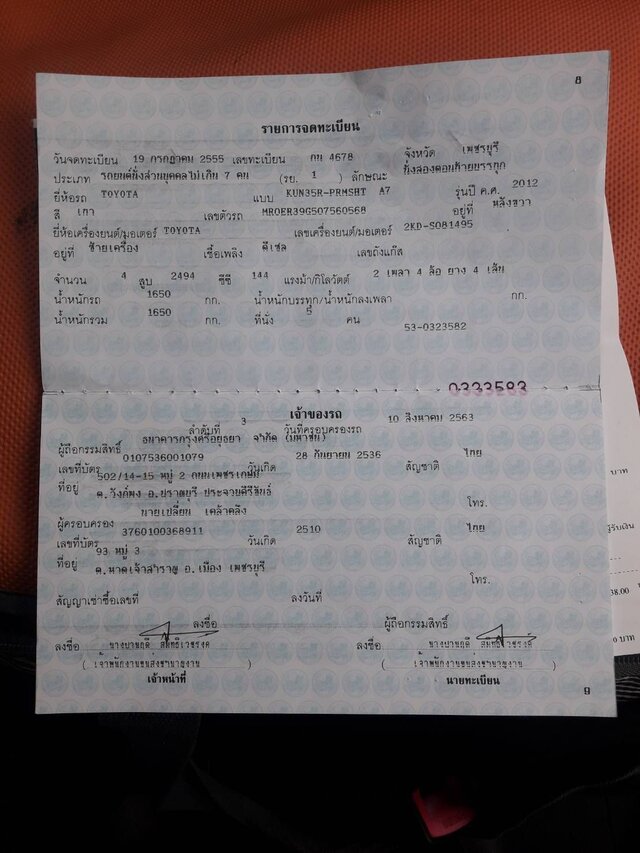 8
รายการจดทะเบียน
วันจดทะเบียน 19 กรกฎาคม 2555 เลขทะเบียน กน 4678 จังหวัด เพชรบุรี
ประเภท รถยนต์นั่งส่วนบุคคลไม่เกิน 7 คน (รย. 1 ) ลักษณะ นั่งสองตอนท้ายบรรทุก
ยี่ห้อรถ TOYOTA แบบ KUN35R-PRMSHT A7 รุ่นปี ค.ศ. 2012
สี เทา เลขตัวรถ MR0ER39G507560568 อยู่ที่ หลังขวา
ยี่ห้อเครื่องยนต์/มอเตอร์ TOYOTA เลขเครื่องยนต์/มอเตอร์ 2KD-S081495
อยู่ที่ ซ้ายเครื่อง เชื้อเพลิง ดีเซล เลขถังแก๊ส
จำนวน 4 สูบ 2494 ซีซี 144 แรงม้า/กิโลวัตต์ 2 เพลา 4 ล้อ ยาง 4 เส้น
น้ำหนักรถ 1650 กก. น้ำหนักบรรทุก/น้ำหนักลงเพลา กก.
น้ำหนักรวม 1650 กก. ที่นั่ง 5 คน
53-0323582
0333583
เจ้าของรถ
ลำดับที่ 3 วันที่ครอบครองรถ 10 สิงหาคม 2563
ผู้ถือกรรมสิทธิ์ ธนาคารกรุงศรีอยุธยา จำกัด (มหาชน)
เลขที่บัตร 0107536001079 วันเกิด 28 กันยายน 2536 สัญชาติ ไทย
ที่อยู่ 502/14-15 หมู่ 2 ถนนเพชรเกษม
ต.วังก์พง อ.ปราณบุรี ประจวบคีรีขันธ์ โทร.
ผู้ครอบครอง นายเปลี่ยน เคล้าคลึง
เลขที่บัตร 3760100368911 วันเกิด 2510 สัญชาติ ไทย
ที่อยู่ 93 หมู่ 3
ต.หาดเจ้าสำราญ อ.เมือง เพชรบุรี โทร.
สัญญาเช่าซื้อเลขที่ ลงวันที่
ลงชื่อ ผู้ถือกรรมสิทธิ์
ลงชื่อ ลงชื่อ
( เจ้าพนักงานขนส่งชำนาญงาน ) ( เจ้าพนักงานขนส่งชำนาญงาน )
เจ้าหน้าที่ นายทะเบียน
9
บาท
ผู้รับเงิน
38.00
0 บาท